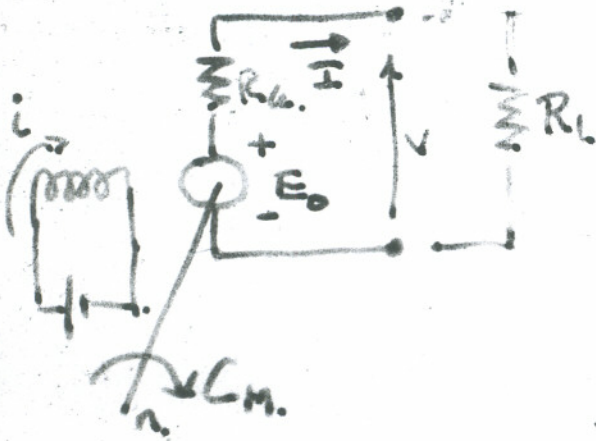 I
Ra.
i
+
V
RL
E0
-
CM.
n.